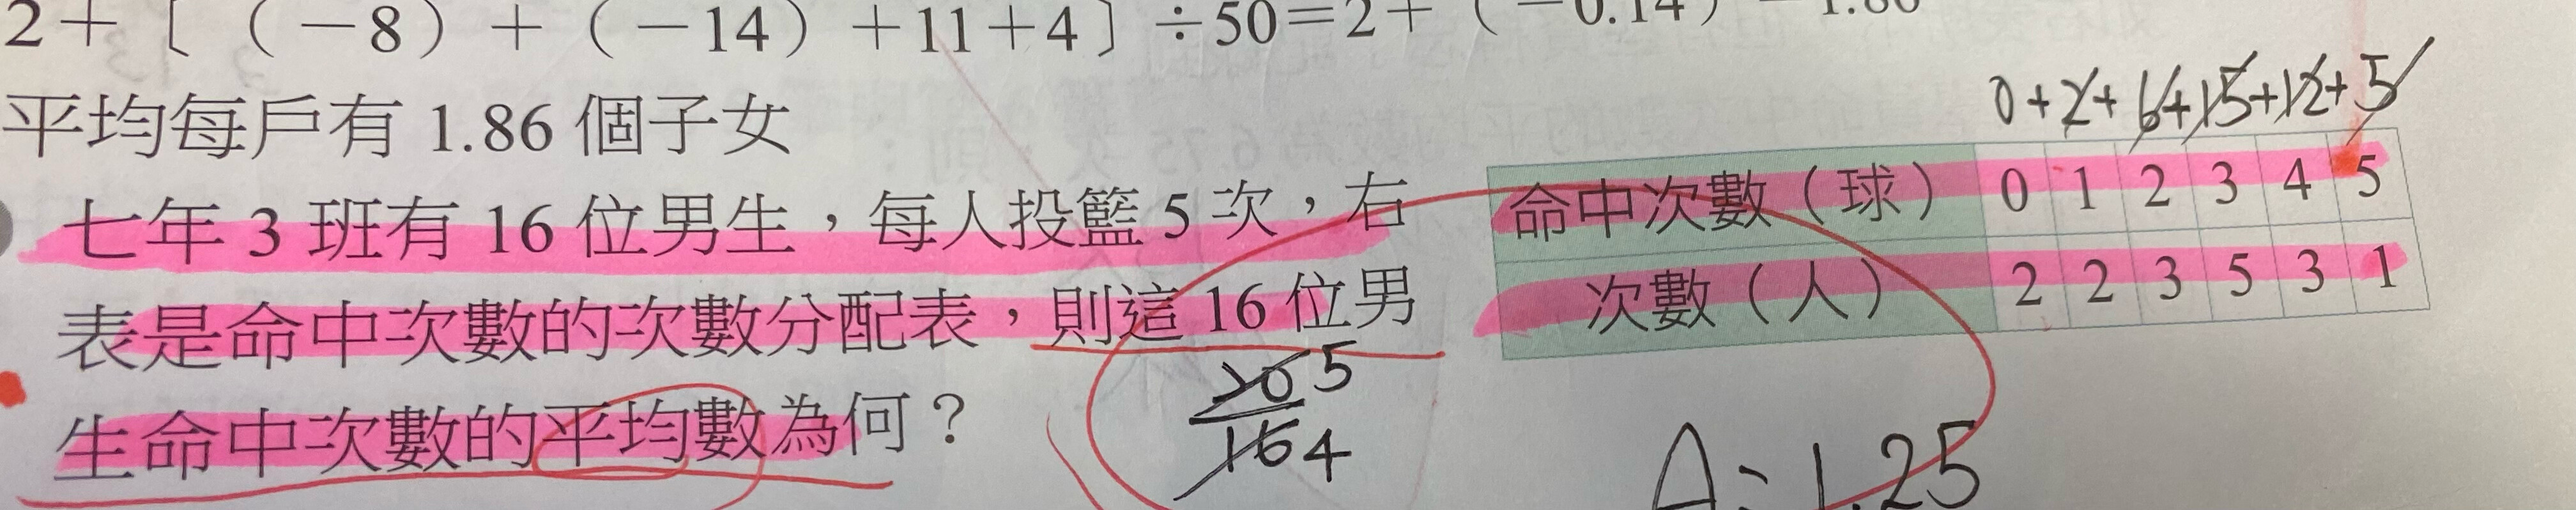 2+〔（-8）+（-14）+11+4〕÷50=2+（-0.14）=1.86
平均每戶有 1.86 個子女
0+2+6+15+12+5
七年 3 班有 16 位男生，每人投籃 5 次，右
表是命中次數的次數分配表，則這 16 位男
生命中次數的平均數為何？
命中次數（球） 0 1 2 3 4 5
次數（人） 2 2 3 5 3 1
20 5
16 4
A：1.25